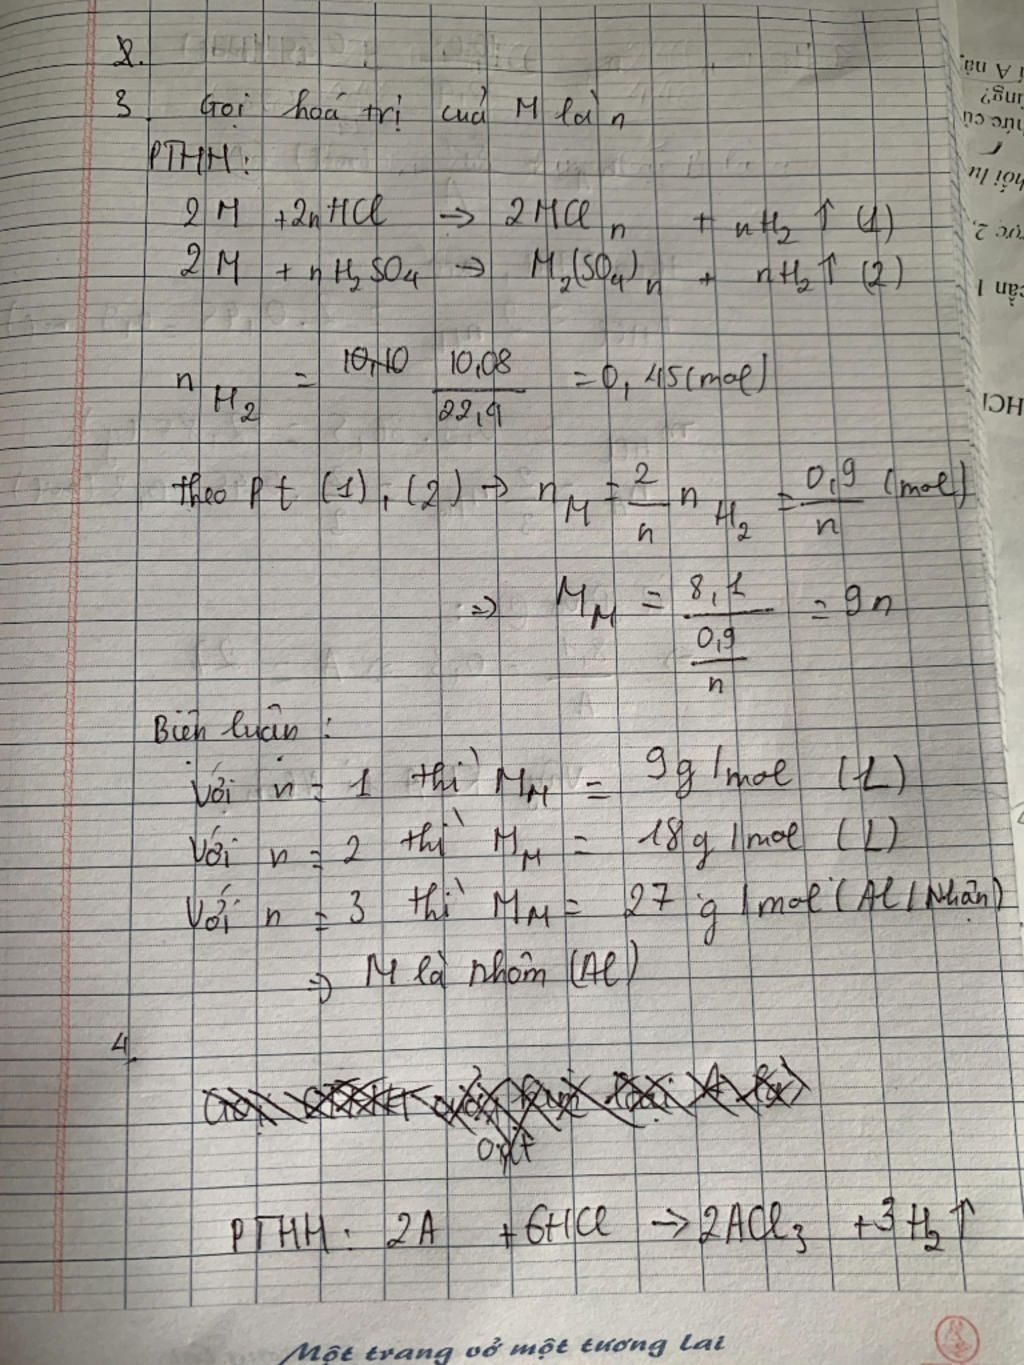 2.
3. Gọi hoá trị của M là n
PTHH:
2M + 2nHCl → 2MCln + nH2 ↑ (1)
2M + nH2SO4 → M2(SO4)n + nH2 ↑ (2)
nH2 = 10,10 10,08/22,4 = 0,45(mol)
theo pt (1), (2) → nM = 2/n nH2 = 0,9/n (mol)
⇒ MM = 8,1/(0,9/n) = 9n
Biện luận:
Với n = 1 thì MM = 9g/mol (L)
Với n = 2 thì MM = 18g/mol (L)
Với n = 3 thì MM = 27 g/mol (Al/Nhận)
⇒ M là nhôm (Al)
4.
PTHH: 2A + 6HCl → 2ACl3 + 3H2 ↑
Một trang vở một tương lai
HCl